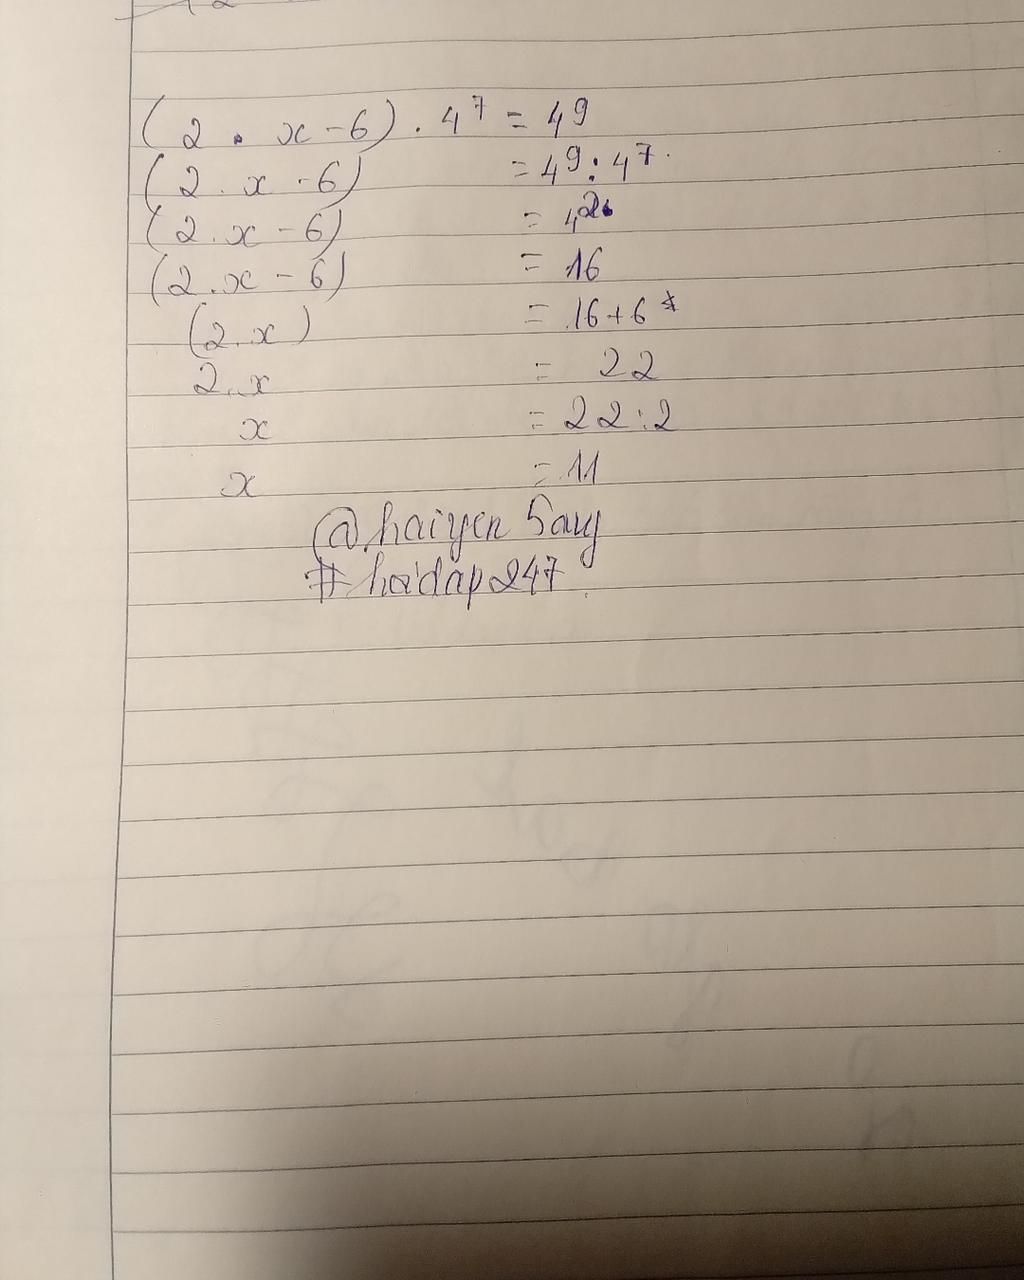 (2 . x - 6) . 4⁷ = 4⁹
(2 . x - 6) = 4⁹ : 4⁷.
(2 . x - 6) = 4²
(2 . x - 6) = 16
(2 . x) = 16 + 6
2 . x = 22
x = 22 : 2
x = 11
@haiyen
#hoidap247